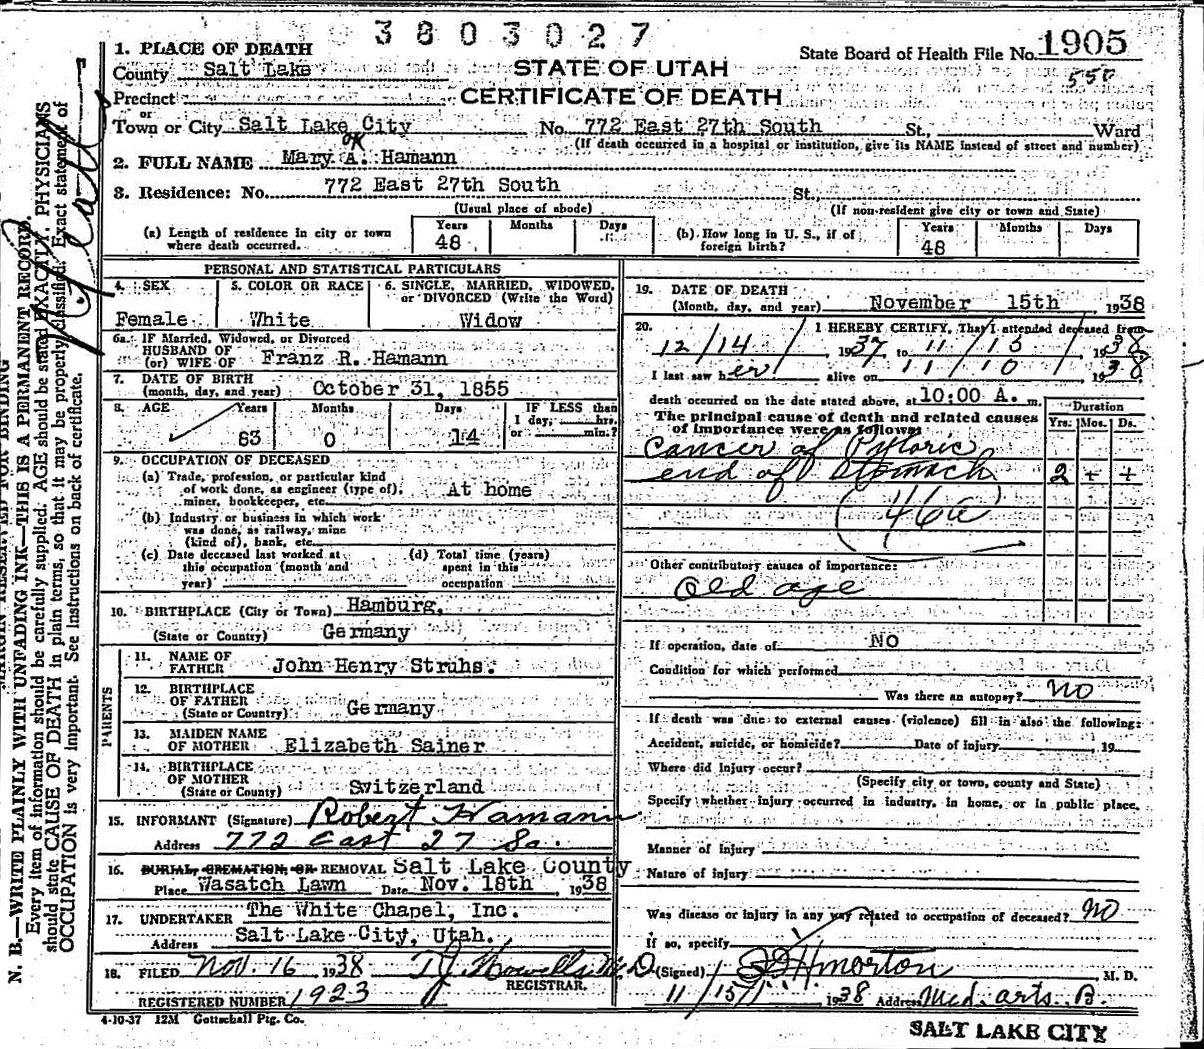 3803027
State Board of Health File No. 1905
550
1. PLACE OF DEATH
County Salt Lake
STATE OF UTAH
Precinct
CERTIFICATE OF DEATH
or
Town or City Salt Lake City No. 772 East 27th South St., Ward
(If death occurred in a hospital or institution, give its NAME instead of street and number)
OK
2. FULL NAME Mary A. Hamann
3. Residence: No. 772 East 27th South St.
(Usual place of abode) (If non-resident give city or town and State)
(a) Length of residence in city or town where death occurred. Years 48 Months Days
(b) How long in U. S., if of foreign birth? Years 48 Months Days
PERSONAL AND STATISTICAL PARTICULARS
4. SEX Female
5. COLOR OR RACE White
6. SINGLE, MARRIED, WIDOWED, or DIVORCED (Write the Word) Widow
6a. If Married, Widowed, or Divorced
HUSBAND OF
(or) WIFE OF Franz R. Hamann
7. DATE OF BIRTH
(month, day, and year) October 31, 1855
8. AGE Years 83 Months 0 Days 14 IF LESS than 1 day, hrs. or min.?
9. OCCUPATION OF DECEASED
(a) Trade, profession, or particular kind
of work done, as engineer (type of), At home
miner, bookkeeper, etc.
(b) Industry or business in which work
was done, as railway, mine
(kind of), bank, etc.
(c) Date deceased last worked at
this occupation (month and
year)
(d) Total time (years)
spent in this
occupation
10. BIRTHPLACE (City or Town) Hamburg,
(State or Country) Germany
PARENTS
11. NAME OF
FATHER John Henry Struhs.
12. BIRTHPLACE
OF FATHER
(State or Country) Germany
13. MAIDEN NAME
OF MOTHER Elizabeth Sainer
14. BIRTHPLACE
OF MOTHER
(State or Country) Switzerland
15. INFORMANT (Signature) Robert Hamann
Address 772 East 27 So.
16. BURIAL, CREMATION, OR REMOVAL Salt Lake County
Place Wasatch Lawn Date Nov. 18th, 1938
17. UNDERTAKER The White Chapel, Inc.
Address Salt Lake City, Utah.
18. FILED Nov. 16 1938 T J Howells M.D.
REGISTRAR.
REGISTERED NUMBER 1923
4-10-37 12M Gottschall Ptg. Co.
19. DATE OF DEATH
(Month, day, and year) November 15th, 1938
20. I HEREBY CERTIFY, That I attended deceased from
12/14/ 1937 to 11/15/ 1938
I last saw her alive on 11/10/ 1938
death occurred on the date stated above, at 10:00 A. m.
The principal cause of death and related causes
of importance were as follows
Duration
Yrs. Mos. Ds.
Cancer of Pyloric
end of Stomach 2 + +
(46a)
Other contributory causes of importance:
Old age
If operation, date of NO
Condition for which performed
Was there an autopsy? NO
If death was due to external causes (violence) fill in also the following:
Accident, suicide, or homicide? Date of injury , 19
Where did injury occur?
(Specify city or town, county and State)
Specify whether injury occurred in industry, in home, or in public place.
Manner of injury
Nature of injury
Was disease or injury in any way related to occupation of deceased? NO
If so, specify
(Signed) Morton M. D.
11/15/ 1938 Address Med. Arts. B.
SALT LAKE CITY
N. B.—WRITE PLAINLY WITH UNFADING INK—THIS IS A PERMANENT RECORD.
Every item of information should be carefully supplied. AGE should be stated EXACTLY. PHYSICIANS
should state CAUSE OF DEATH in plain terms, so that it may be properly classified. Exact statement of
OCCUPATION is very important. See instructions on back of certificate.